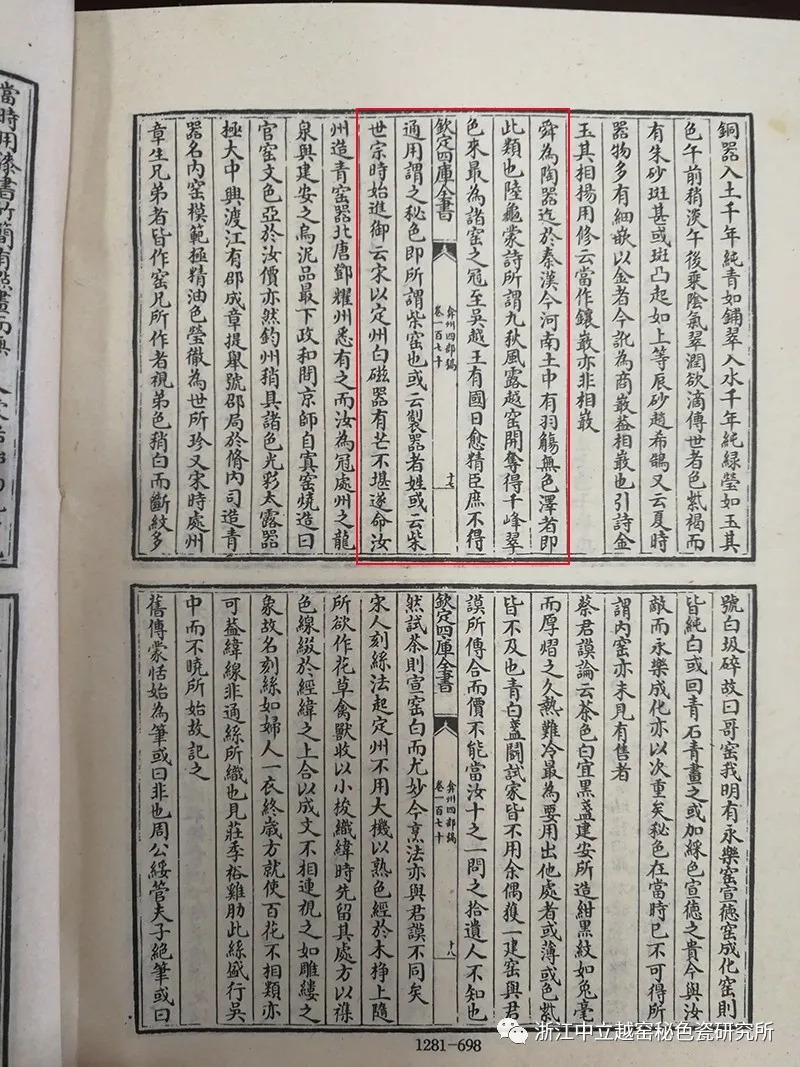 銅器入土千年純青如鋪翠入水千年純緑瑩如玉其
色午前稍淡午後乗陰氣翠潤欲滴傳世者色紫褐而
有朱砂斑甚或斑凸起如上等辰砂趙希鵠又云夏時
器物多有細嵌以金者今訛為商嵌葢相嵌也引詩金
玉其相揚用修云當作鑲嵌亦非相嵌
舜為陶器迄於秦漢今河南土中有羽觴無色澤者即
此類也陸龜蒙詩所謂九秋風露越窑開奪得千峰翠
色來最為諸窑之冠至吳越王有國日愈精臣庶不得
欽定四庫全書
弇州四部稿
卷一百七十
十七
通用謂之秘色即所謂柴窑也或云製器者姓或云柴
世宗時始進御云宋以定州白磁器有芒不堪遂命汝
州造青窑器北唐鄧耀州悉有之而汝為冠處州之龍
泉與建安之烏泥品最下政和間京師自寘窑燒造曰
官窑文色亞於汝價亦然鈞州稍具諸色光彩太露器
極大中興渡江有邵成章提舉號邵局於脩內司造青
器名內窑模範極精油色瑩徹為世所珍又宋時處州
章生兄弟者皆作窑兄所作者視弟色稍白而斷紋多
號白圾碎故曰哥窑我明有永樂窑宣德窑成化窑則
皆純白或回青石青畫之或加綵色宣德之貴今與汝
敵而永樂成化亦以次重矣秘色在當時已不可得所
謂內窑亦未見有售者
蔡君謨論云茶色白宜黑盞建安所造紺黑紋如兔毫
而厚熠之久熱難冷最為要用出他處者或薄或色紫
皆不及也青白盞鬬試家皆不用余偶獲一建窑與君
謨所傳合而價不能當汝十之一問之拾遺人不知也
欽定四庫全書
弇州四部稿
卷一百七十
十八
然試茶則宣窑白而尤妙今烹法亦與君謨不同矣
宋人刻絲法起定州不用大機以熟色經於木挣上隨
所欲作花草禽獸收以小梭織緯時先留其處方以襍
色線綴於經緯之上合以成文不相連視之如雕縷之
象故名刻絲如婦人一衣終歲方就使百花不相類亦
可葢緯線非通絲所織也見莊季裕雞肋此絲盛行吳
中而不曉所始故記之
舊傳蒙恬始為筆或曰非也周公綬管夫子絶筆或曰
當時用漆書竹簡有點畫而無
1281-698
浙江中立越窑秘色瓷研究所